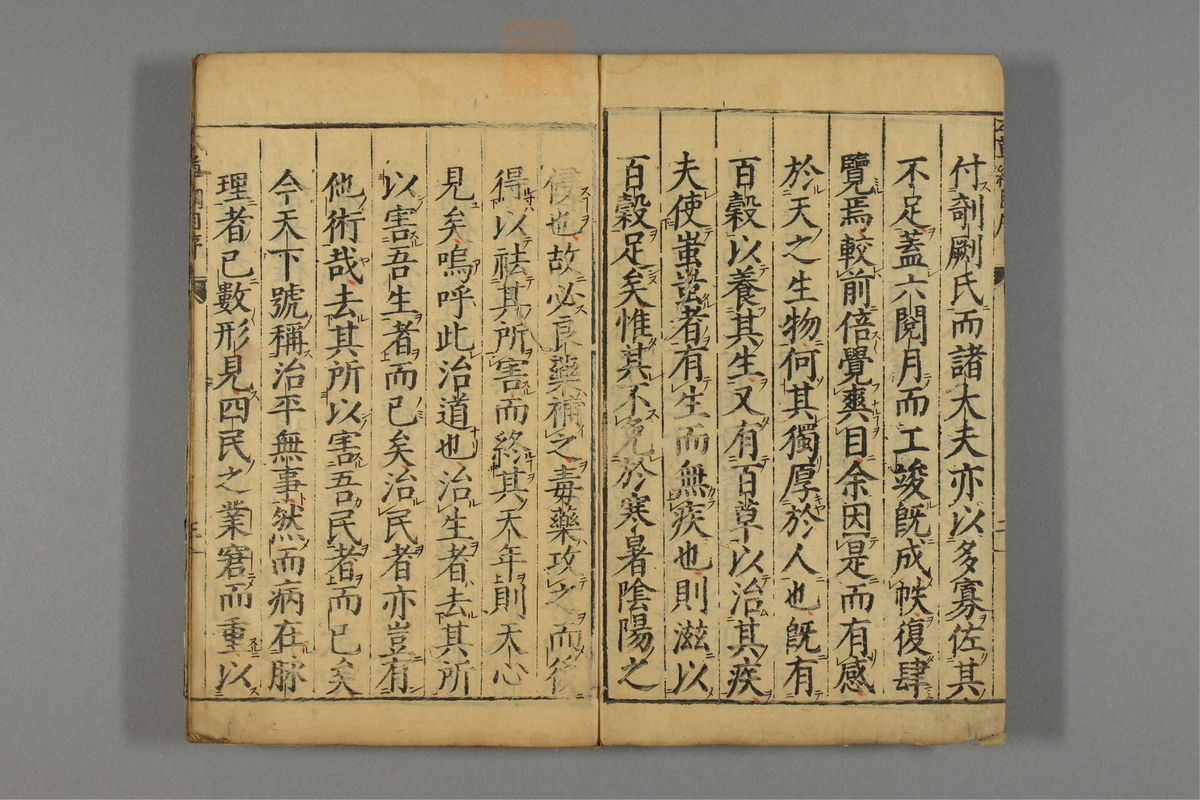 付剞劂氏而諸大夫亦以多寡佐其
不足蓋六閱月而工竣旣成帙復肆
覽焉較前倍覺爽目余因是而有感
於天之生物何其獨厚於人也旣有
百穀以養其生又有百草以治其疾
夫使蚩蚩者有生而無疾也則滋以
百穀足矣惟其不免於寒暑陰陽之
侵也故必良藥補之毒藥攻之而後
得以祛其所害而終其天年則天心
見矣嗚呼此治道也治生者去其所
以害吾生者而已矣治民者亦豈有
他術哉去其所以害吾民者而已矣
今天下號稱治平無事然而病在脉
理者已數形見四民之業窘而重以